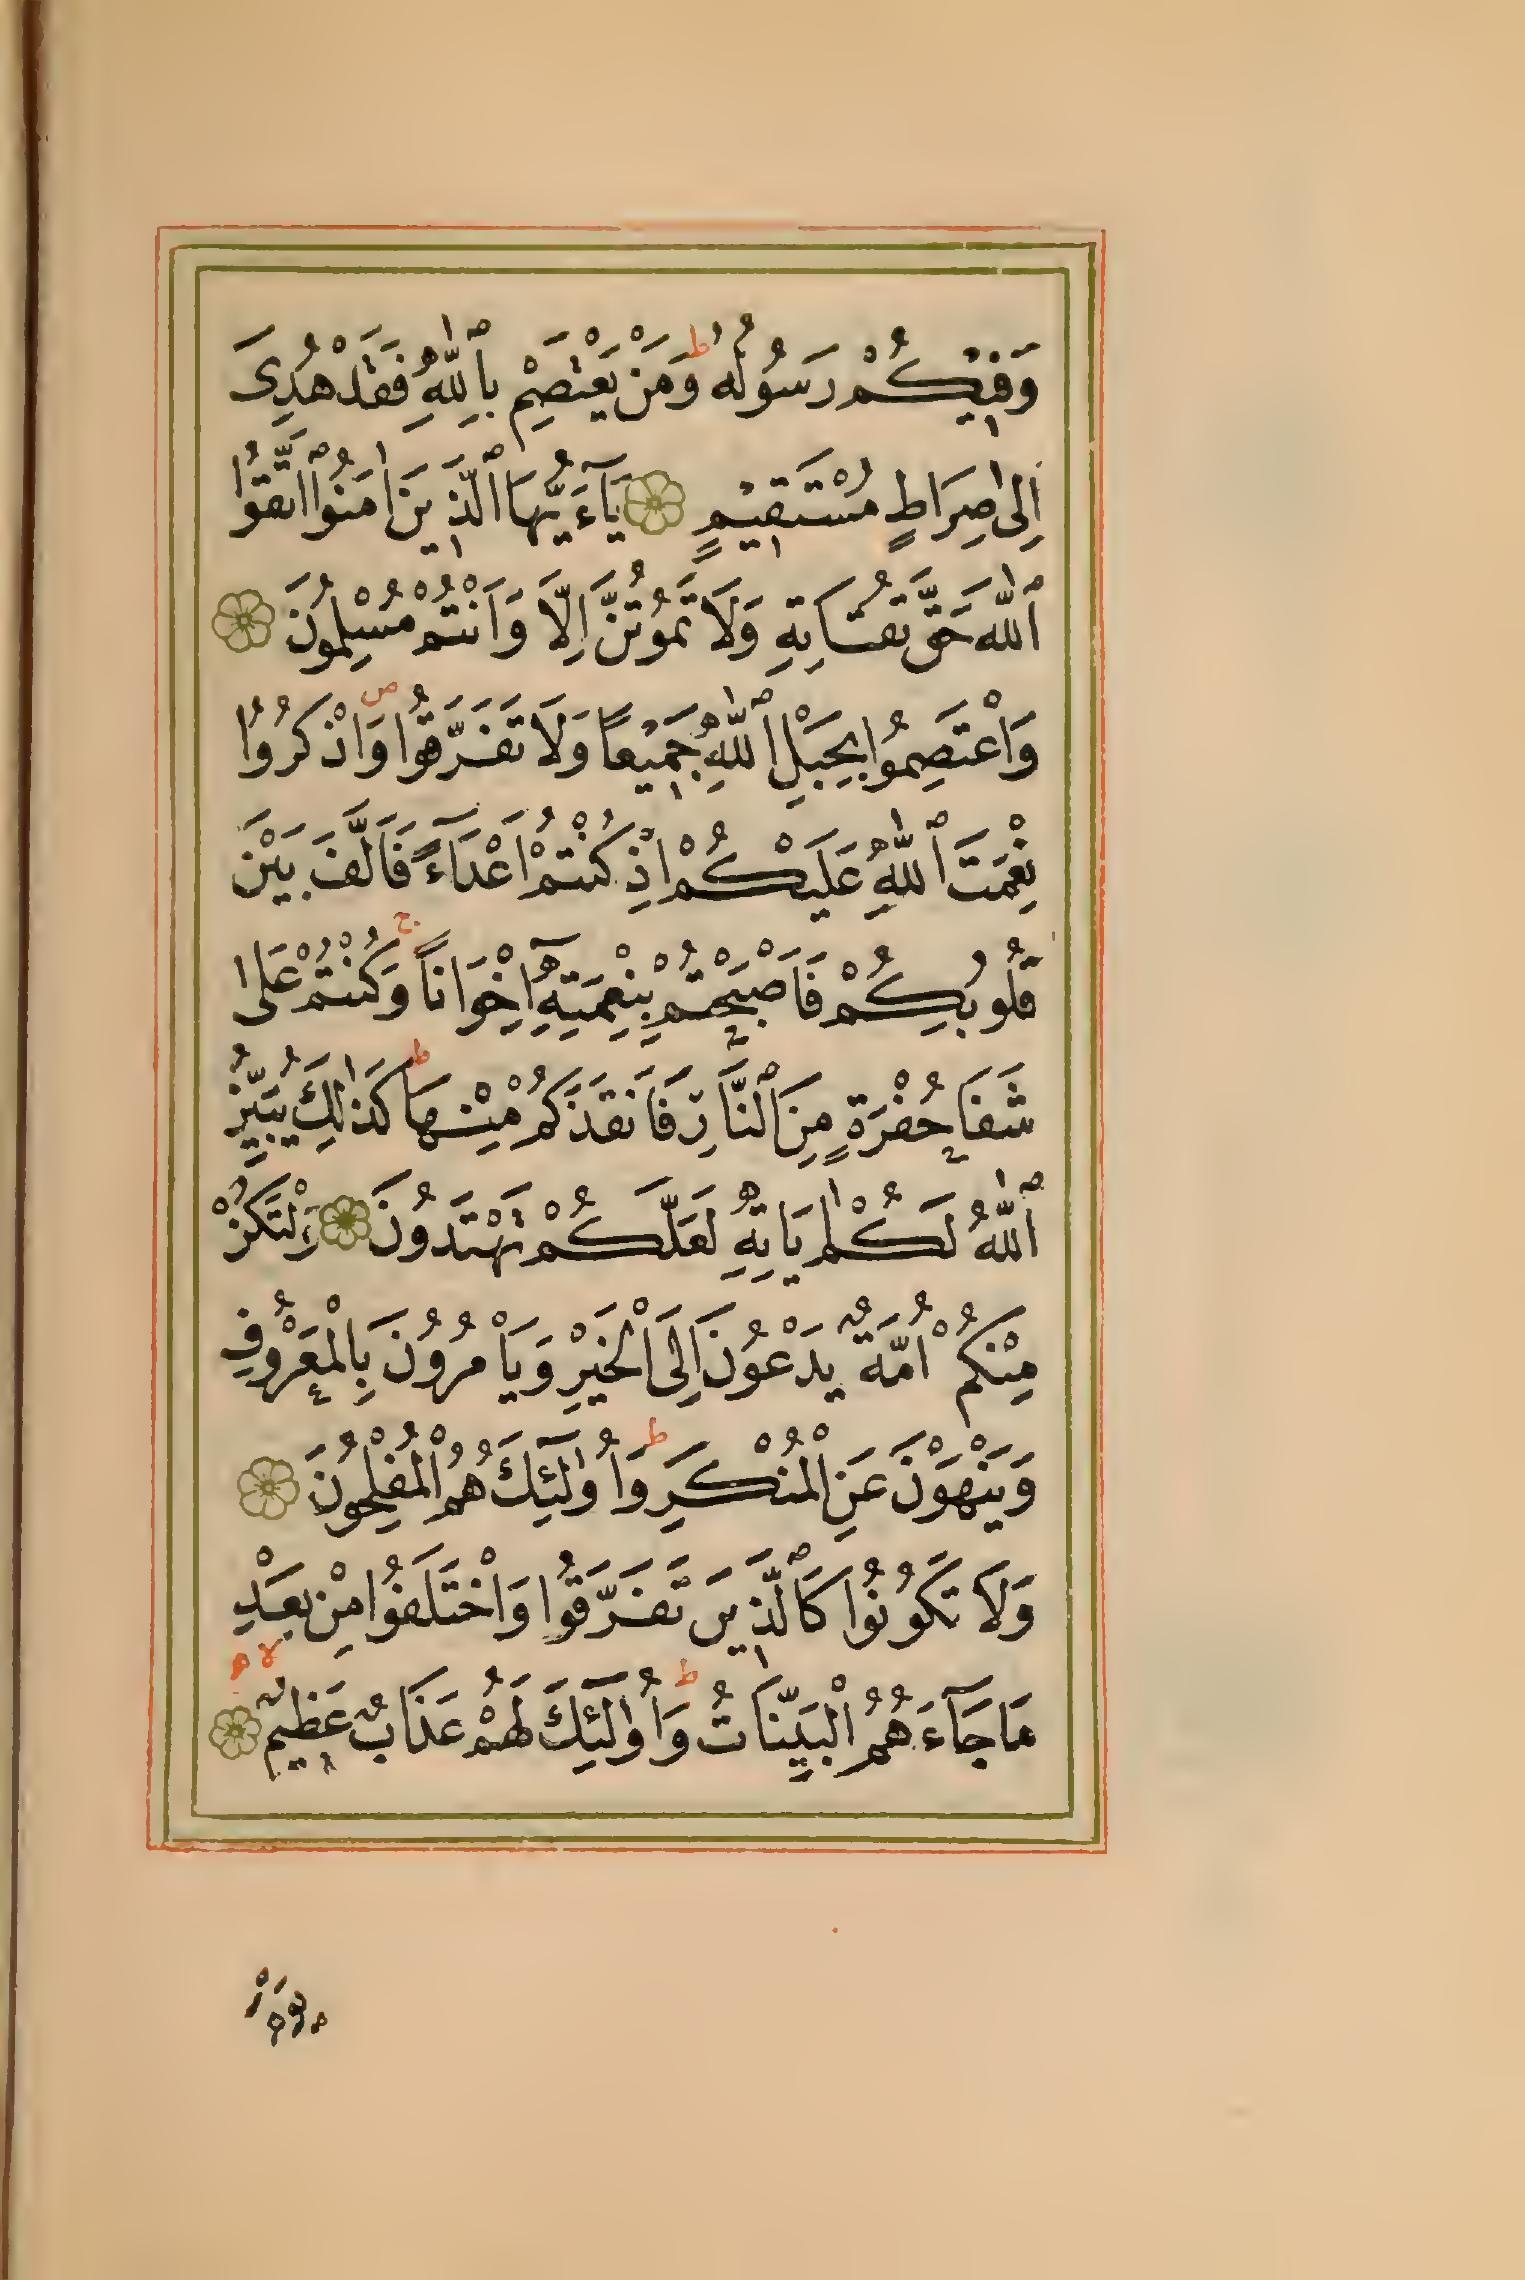 وَفِيكُمْ رَسُولُهُ ط وَمَنْ يَعْتَصِمْ بِٱللّٰهِ فَقَدْ هُدِىَ
اِلٰى صِرَاطٍ مُسْتَقِيمٍ يَآءَيُّهَا ٱلَّذِينَ اٰمَنُوا ٱتَّقُوا
ٱللّٰهَ حَقَّ تُقَاتِهِ وَلَا تَمُوتُنَّ اِلَّا وَاَنْتُمْ مُسْلِمُونَ
وَاعْتَصِمُوا بِحَبْلِ ٱللّٰهِ جَمِيعًا وَلَا تَفَرَّقُوا ص وَاذْكُرُوا
نِعْمَتَ ٱللّٰهِ عَلَيْكُمْ اِذْ كُنْتُمْ اَعْدَآءً فَاَلَّفَ بَيْنَ
قُلُوبِكُمْ فَاَصْبَحْتُمْ بِنِعْمَتِهِٓ اِخْوَانًا ج وَكُنْتُمْ عَلٰى
شَفَا حُفْرَةٍ مِنَ ٱلنَّارِ فَاَنْقَذَكُمْ مِنْهَا ط كَذٰلِكَ يُبَيِّنُ
ٱللّٰهُ لَكُمْ اٰيَاتِهِ لَعَلَّكُمْ تَهْتَدُونَ وَلْتَكُنْ
مِنْكُمْ اُمَّةٌ يَدْعُونَ اِلَى الْخَيْرِ وَيَاْمُرُونَ بِالْمَعْرُوفِ
وَيَنْهَوْنَ عَنِ الْمُنْكَرِ ط وَاُولٰٓئِكَ هُمُ الْمُفْلِحُونَ
وَلَا تَكُونُوا كَٱلَّذِينَ تَفَرَّقُوا وَاخْتَلَفُوا مِنْ بَعْدِ
مَا جَآءَهُمُ الْبَيِّنَاتُ ط وَاُولٰٓئِكَ لَهُمْ عَذَابٌ عَظِيمٌ لا ه